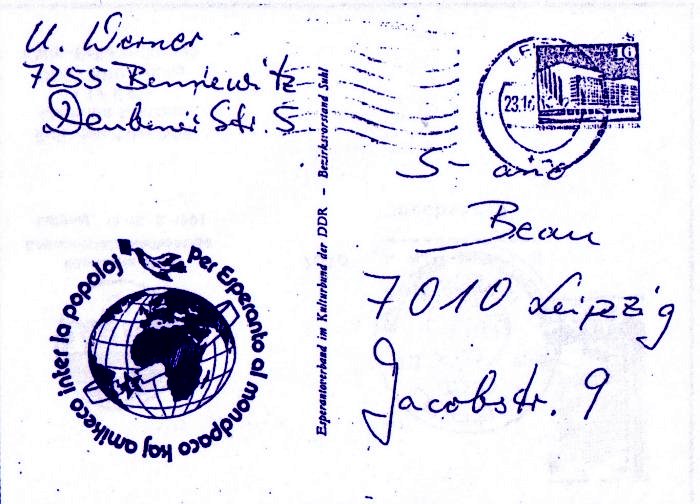 U. Werner
7255 Bennewitz
Deubener Str. 5
Esperantoverband im Kulturbund der DDR - Bezirksvorstand Suhl
per Esperanto al mondpaco kaj amikeco inter la popoloj
10
23.10
S-ano
Beau
7010 Leipzig
Jacobstr. 9